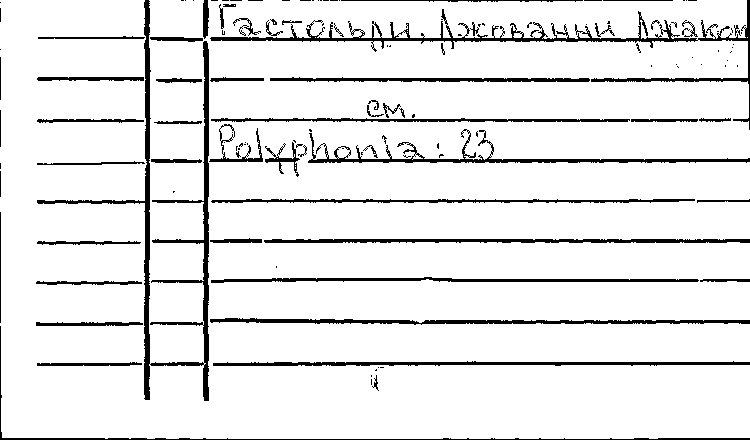 Гастольди, Джованни Джаком
см.
Polyphonia: 23